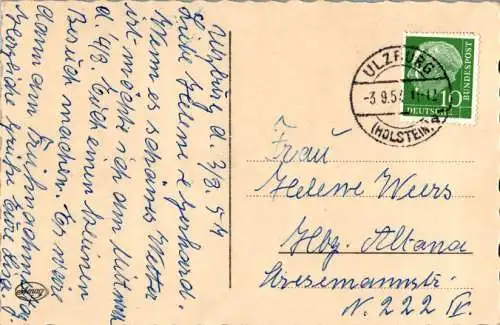 Ulzburg d. 3/9. 54
Liebe Helene & Gerhard.
Wenn es schönes Wetter
ist möchte ich am Mittwoch
d. 4/8. Euch einen kleinen
Besuch machen. Es wird
dann am Frühnachmittag
Herzliche Grüße Eure
ULZBURG
-3.9.54
(HOLSTEIN)
DEUTSCHE
BUNDESPOST
10
Frau
Helene Weers
Hbg. Altona
Stresemannstr.
N. 222 IV.